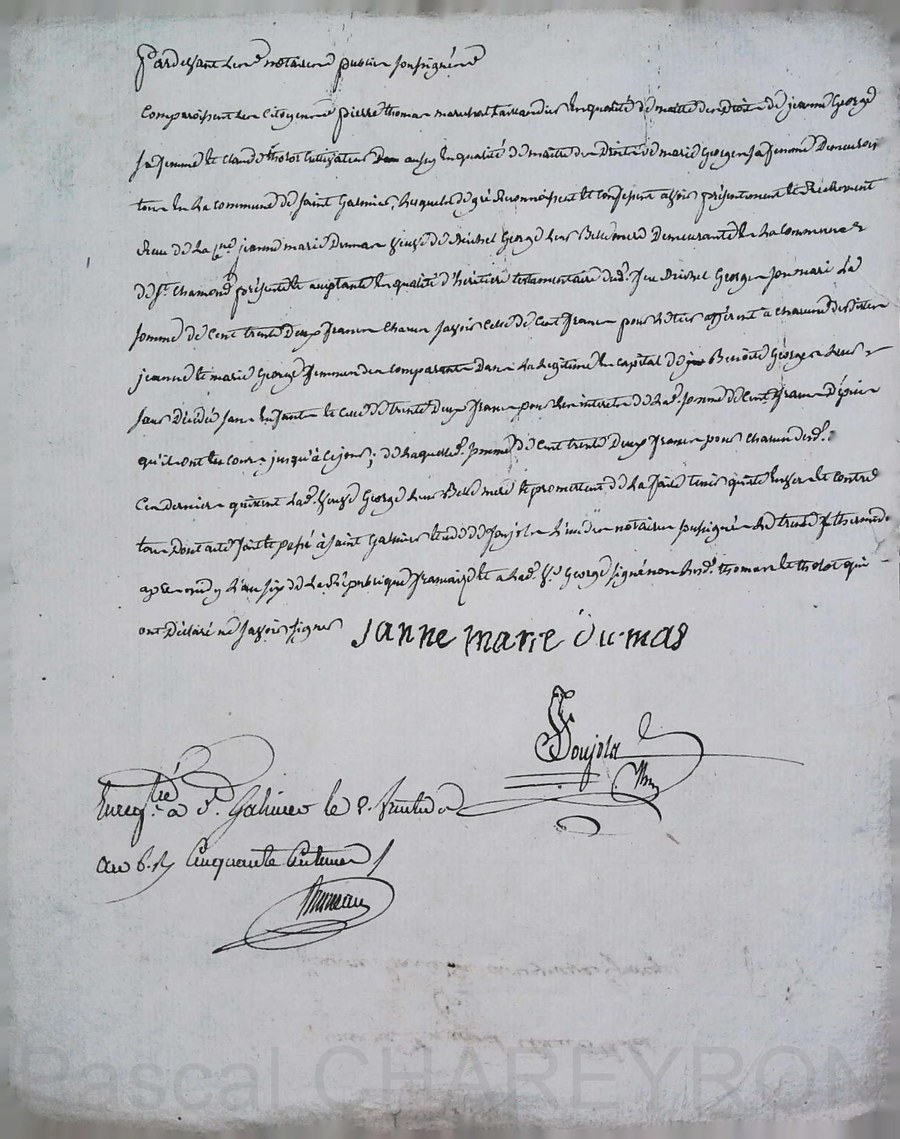 Pardevant les notaires publics soussignés
Comparoissent les Citoyens pierre thomas marechal taillandier en qualité de maitre des Droits de jeanne George
sa femme et Claude tholot Cultivateur aussy en qualité de maitre des Droits de marie George sa femme Demeurois
tous en la commune de saint Galmier, lesquels de gré Reconnoissent et confessent avoir présentement et Réellement
Reçu de la Cne jeanne marie Dumas veuve de Michel George leur Bellemere Demeurante en la Commune
de St. Chamond présente et acceptante en qualité d'héritiere testamentaire dud. feu Michel George son mari La
somme de Cent trente Deux francs Chacun savoir Celle de Cent francs pour afférent à chacune desdites
jeanne et marie George femmes des comparants Dans La Legitime en capital de Benoite George leur
sœur Décédée sans Enfants et Celle de trente Deux francs pour les interets de Lad. somme de Cent francs Dépuis
qu'ils ont eu cours jusqu'à Ce jour; de laquelle somme de Cent trente Deux francs pour chacun lesd.
Ces derniers quittent Lad. veuve George leur Belle mere et promettent de La faire tenir quitte Envers et contre
tous Dont acte fait et passé à saint Galmier étude de Soujols L'un des notaires soussignés Le trente thermidor
apres midy L'an six de La République française et a Lad. Ve George signé non lesd. thomas et tholot qui
ont Déclaré ne savoir signer Janne marie du mas
Soujols
Enregtré à St. Galmier le 2. fructidor
an 6. R. Cinquante Centimes